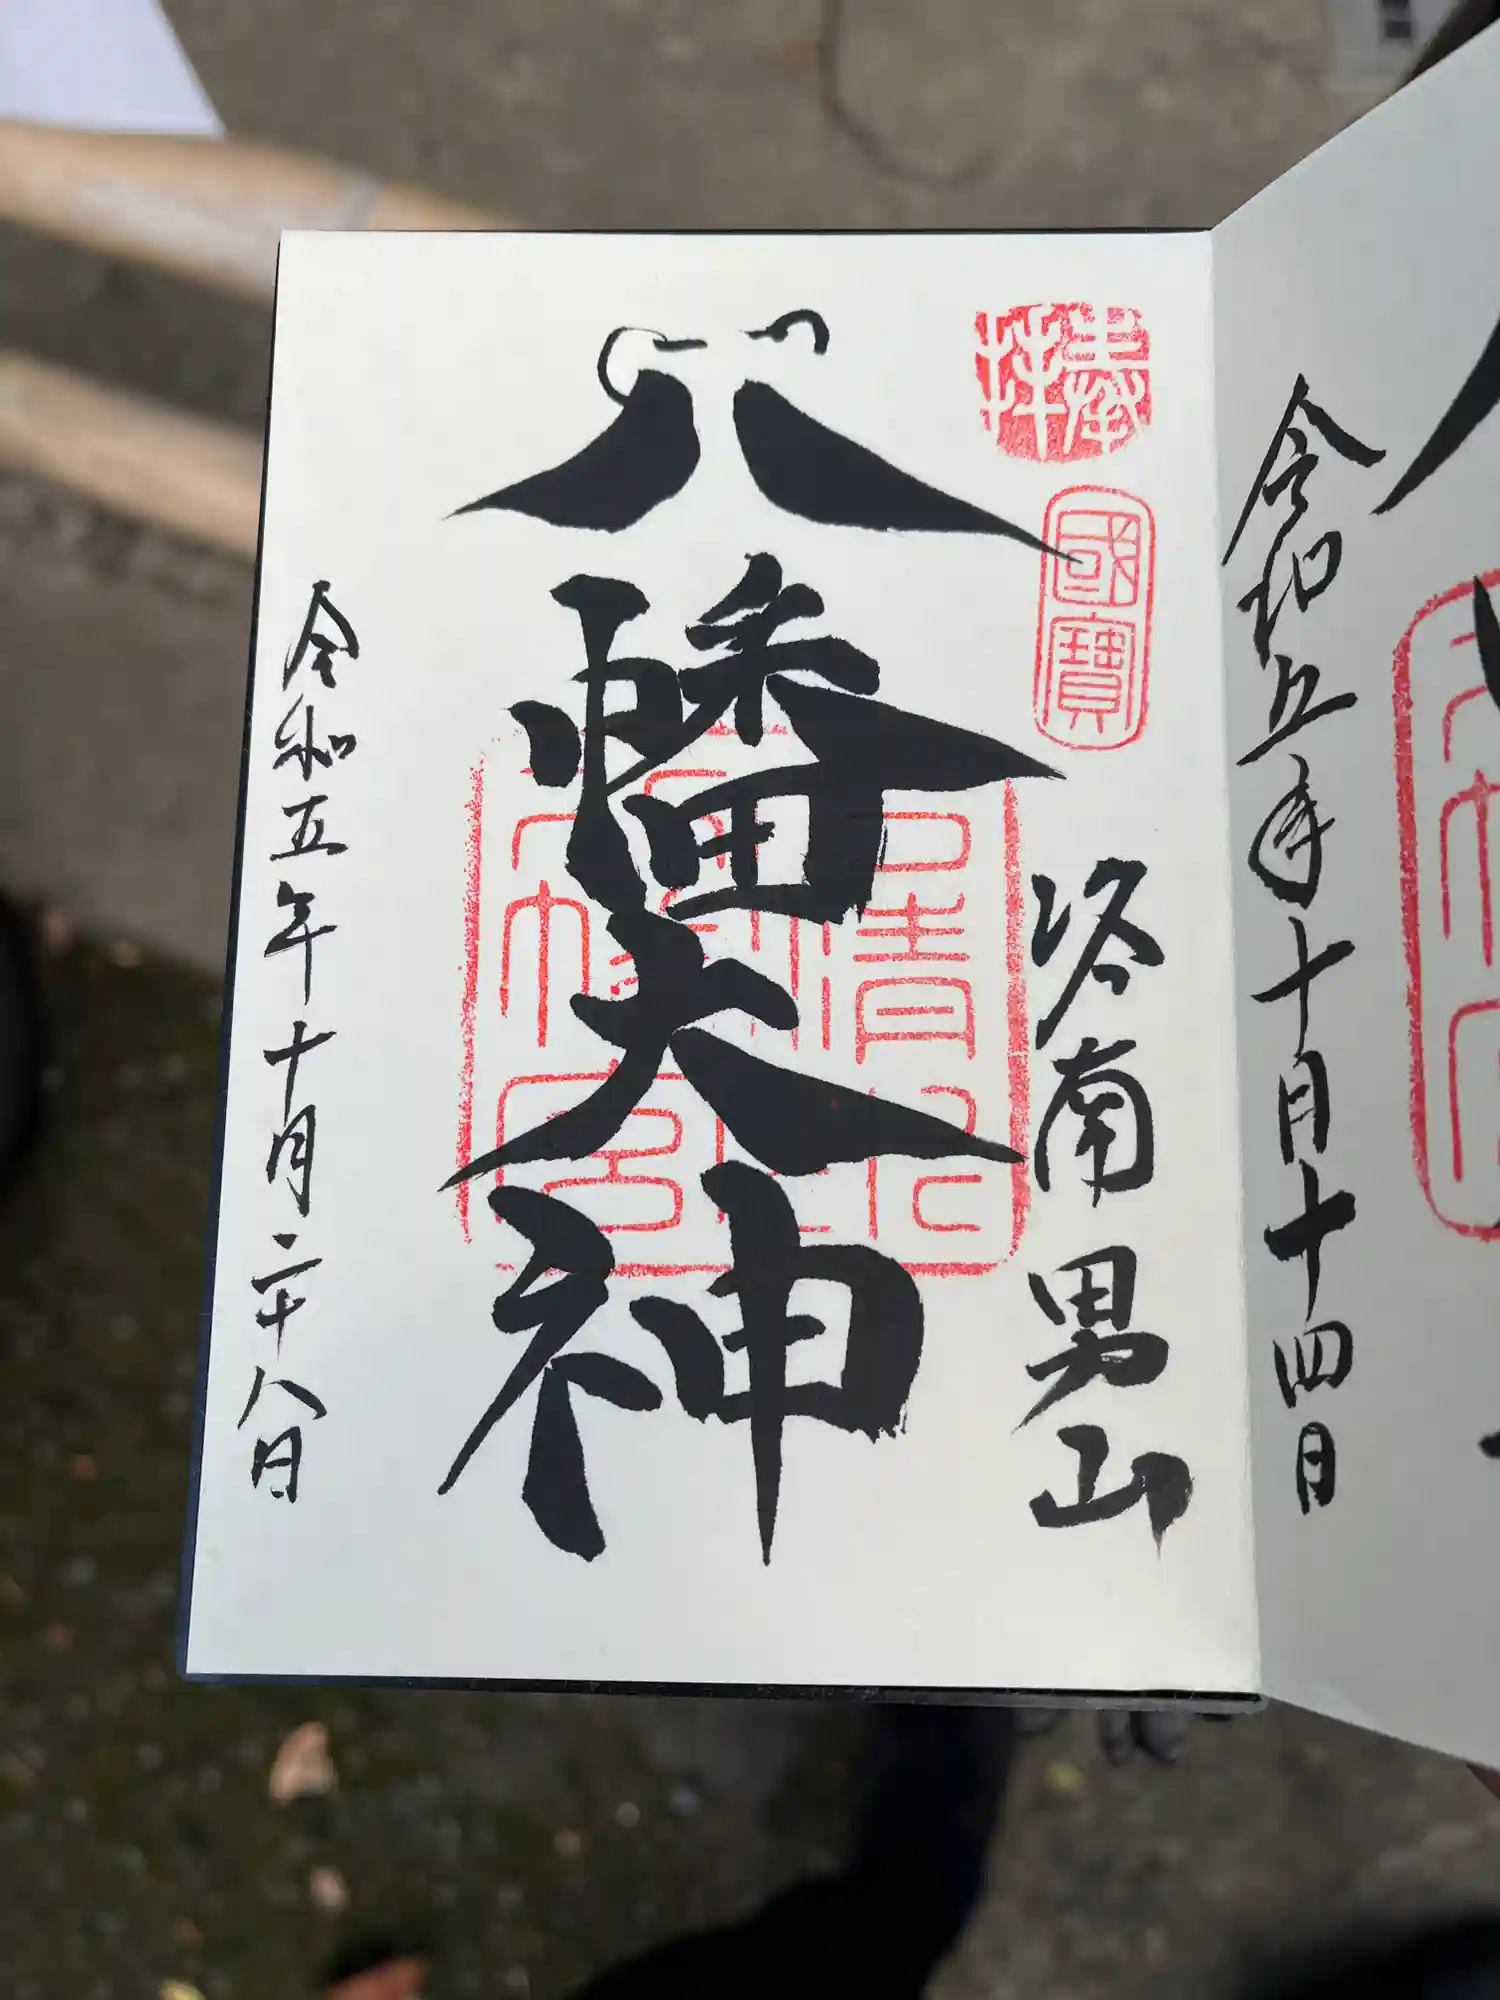 令和五年十月十四日
奉拝
國寶
洛南男山
八幡大神
令和五年十月二十八日